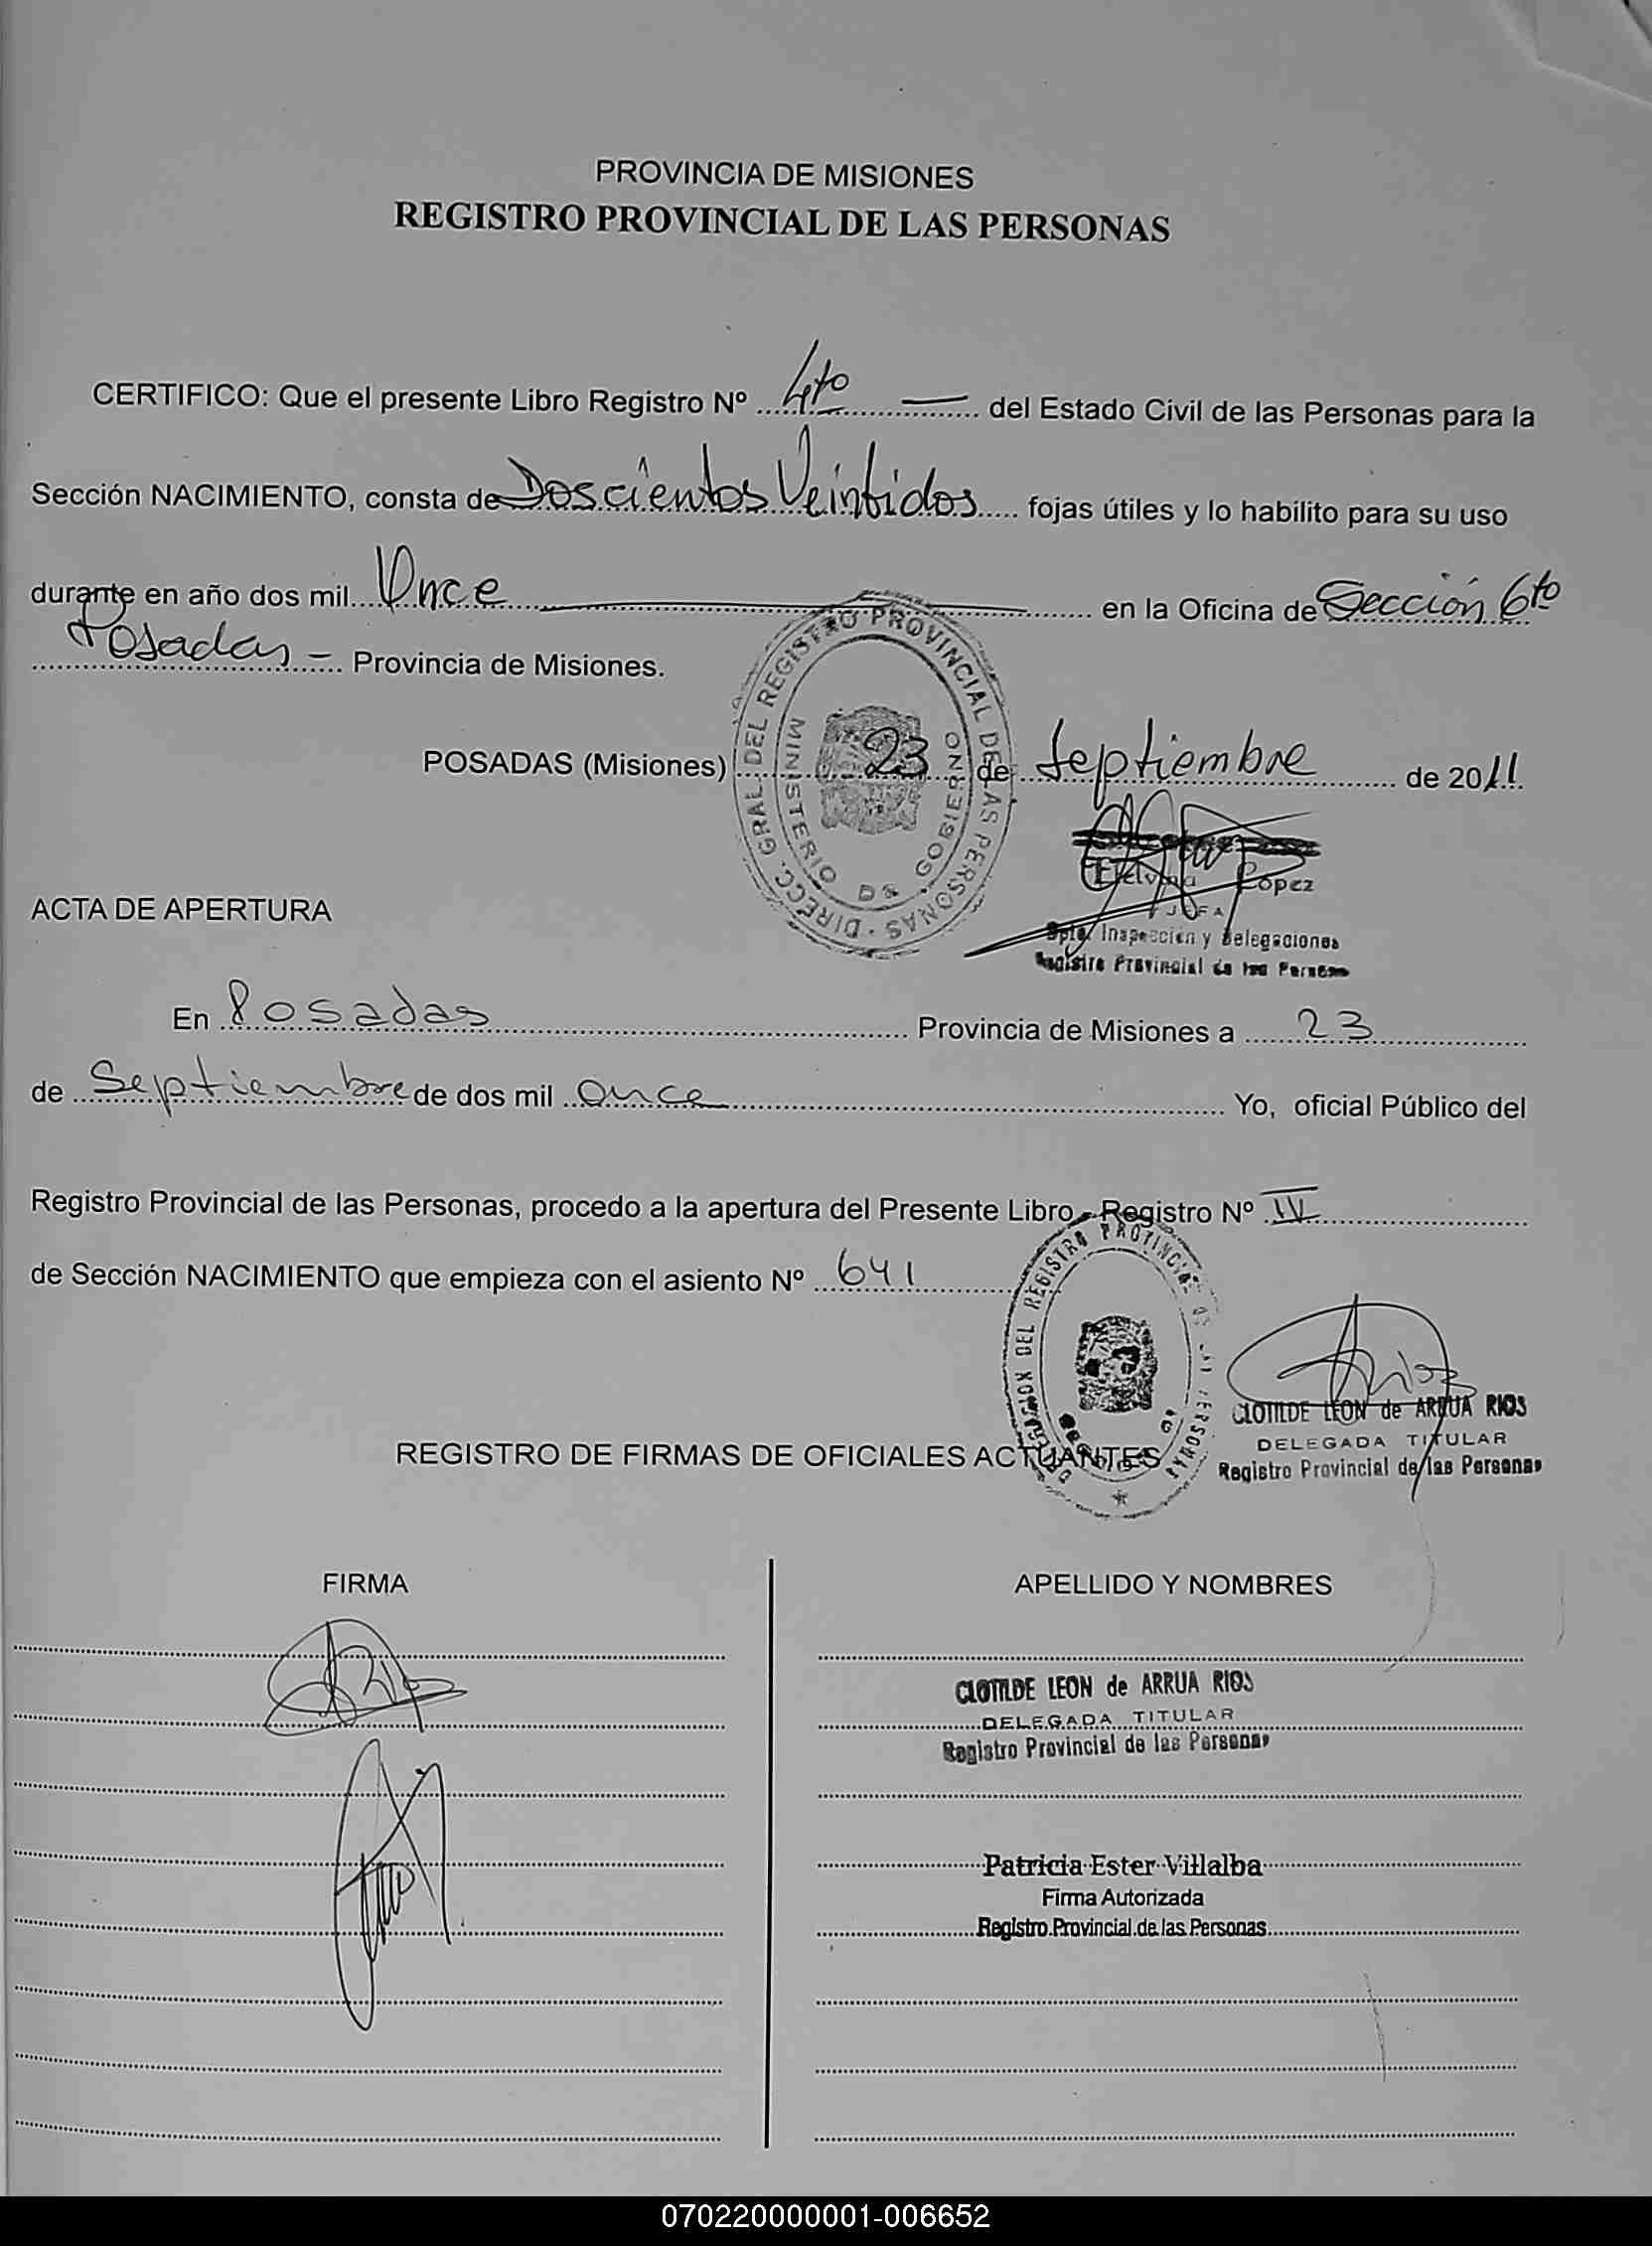 PROVINCIA DE MISIONES
REGISTRO PROVINCIAL DE LAS PERSONAS
CERTIFICO: Que el presente Libro Registro Nº 4to — del Estado Civil de las Personas para la
Sección NACIMIENTO, consta de Doscientos Veintidos fojas útiles y lo habilito para su uso
durante en año dos mil Once en la Oficina de Sección 6to
Posadas - Provincia de Misiones.
DIRECC. GRAL DEL REGISTRO PROVINCIAL DE LAS PERSONAS
MINISTERIO DE GOBIERNO
POSADAS (Misiones) 23 de Septiembre de 2011
López
JEFA
Dpto. Inspección y Delegaciones
Registro Provincial de las Personas
ACTA DE APERTURA
En Posadas Provincia de Misiones a 23
de Septiembre de dos mil Once Yo, oficial Público del
Registro Provincial de las Personas, procedo a la apertura del Presente Libro - Registro Nº IV
de Sección NACIMIENTO que empieza con el asiento Nº 641
DEL REGISTRO PROVINCIAL DE LAS PERSONAS
CLOTILDE LEON de ARRUA RIOS
DELEGADA TITULAR
Registro Provincial de las Personas
REGISTRO DE FIRMAS DE OFICIALES ACTUANTES
FIRMA
APELLIDO Y NOMBRES
CLOTILDE LEON de ARRUA RIOS
DELEGADA TITULAR
Registro Provincial de las Personas
Patricia Ester Villalba
Firma Autorizada
Registro Provincial de las Personas
070220000001-006652